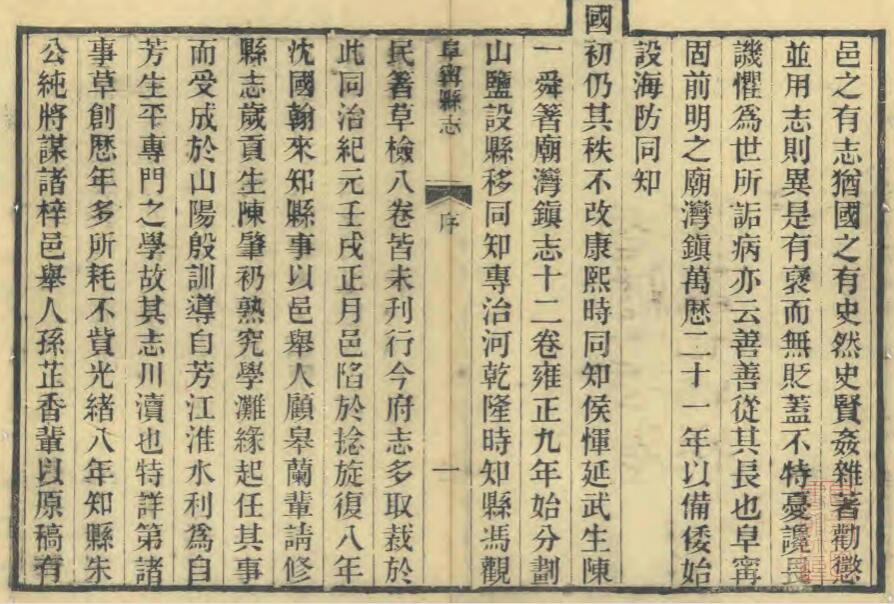 邑之有志猶國之有史然史賢姦雜著勸懲
並用志則異是有褒而無貶蓋不特憂讒畏
譏懼爲世所詬病亦云善善從其長也阜寗
固前明之廟灣鎮萬厯二十一年以備倭始
設海防同知
國初仍其秩不改康熙時同知侯惲延武生陳
一舜箸廟灣鎮志十二卷雍正九年始分劃
山鹽設縣移同知專治河乾隆時知縣馮觀
阜寗縣志
序
一
民箸草檢八卷皆未刊行今府志多取裁於
此同治紀元壬戌正月邑陷於捻旋復八年
沈國翰來知縣事以邑舉人顧皋蘭輩請修
縣志歲貢生陳肇礽熟究學灘緣起任其事
而受成於山陽殷訓導自芳江淮水利爲自
芳生平專門之學故其志川瀆也特詳第諸
事草創厯年多所耗不貲光緒八年知縣朱
公純將謀諸梓邑舉人孫芷香輩以原稿有